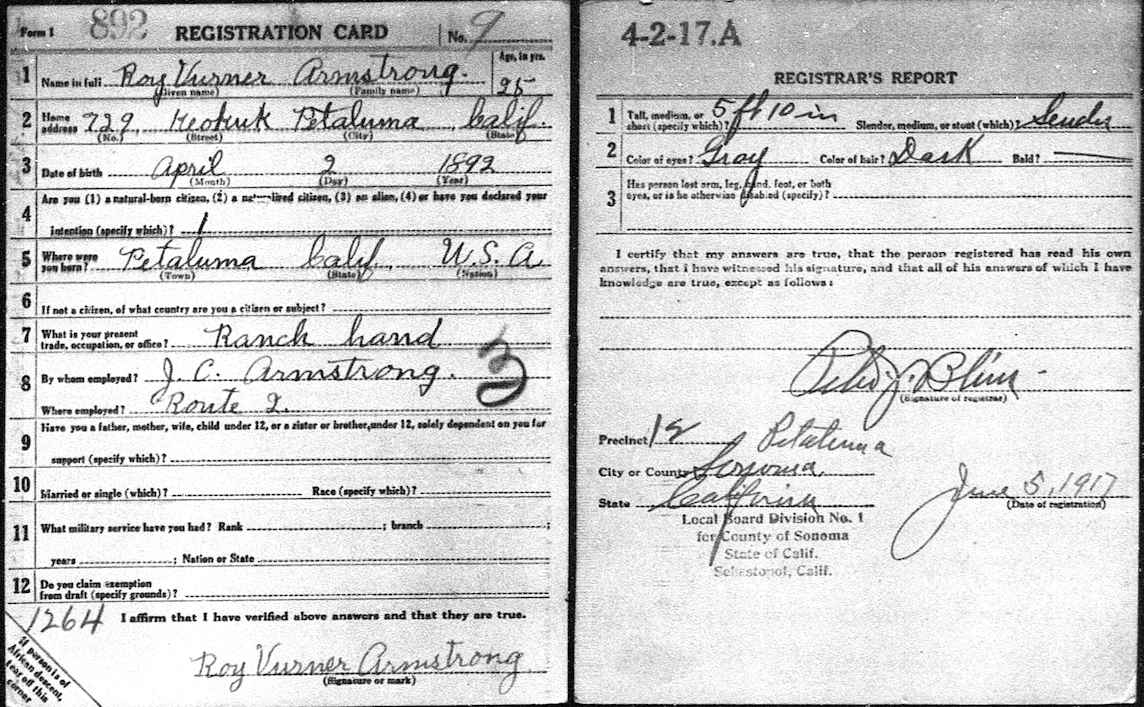 Form 1 892 REGISTRATION CARD No. 9
1 Name in full Roy Vurner Armstrong. Age, in yrs. 25
(Given name) (Family name)
2 Home address 729 Keokuk Petaluma Calif.
(No.) (Street) (City) (State)
3 Date of birth April 2 1892
(Month) (Day) (Year)
4 Are you (1) a natural-born citizen, (2) a naturalized citizen, (3) an alien, (4) or have you declared your
intention (specify which)? 1
5 Where were you born? Petaluma Calif. U.S.A.
(Town) (State) (Nation)
6 If not a citizen, of what country are you a citizen or subject?
7 What is your present trade, occupation, or office? Ranch hand
8 By whom employed? J. C. Armstrong.
Where employed? Route 2.
9 Have you a father, mother, wife, child under 12, or a sister or brother, under 12, solely dependent on you for
support (specify which)?
10 Married or single (which)? Race (specify which)?
11 What military service have you had? Rank ; branch ;
years ; Nation or State
12 Do you claim exemption from draft (specify grounds)?
1264 I affirm that I have verified above answers and that they are true.
Roy Vurner Armstrong
(Signature or mark)
If person is of
African descent,
tear off this
corner
4-2-17.A
REGISTRAR'S REPORT
1 Tall, medium, or short (specify which)? 5 ft 10 in Slender, medium, or stout (which)? Slender
2 Color of eyes? Gray Color of hair? Dark Bald?
3 Has person lost arm, leg, hand, foot, or both
eyes, or is he otherwise disabled (specify)?
I certify that my answers are true, that the person registered has read his own
answers, that I have witnessed his signature, and that all of his answers of which I have
knowledge are true, except as follows:
(Signature of registrar)
Precinct 12 Petaluma
City or County Sonoma
State California June 5, 1917
(Date of registration)
Local Board Division No. 1
for County of Sonoma
State of Calif.
Sebastopol, Calif.